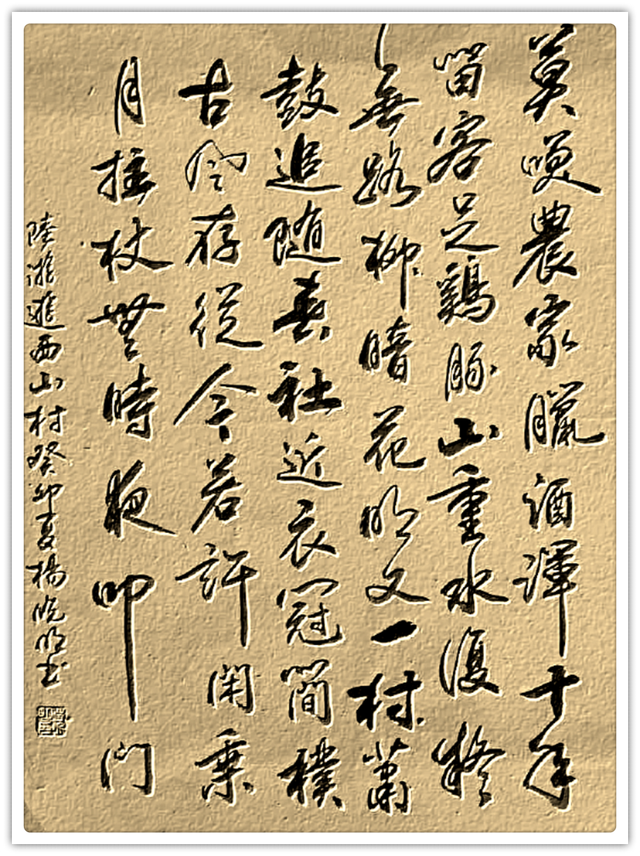 莫咲農家臘酒渾十年
留客足鷄豚山重水復疑
無路柳暗花明又一村蕭
鼓追隨春社近衣冠簡樸
古風存從今若許閑乘
月拄杖無時夜叩門
陸游遊西山村癸卯夏楊晓明书